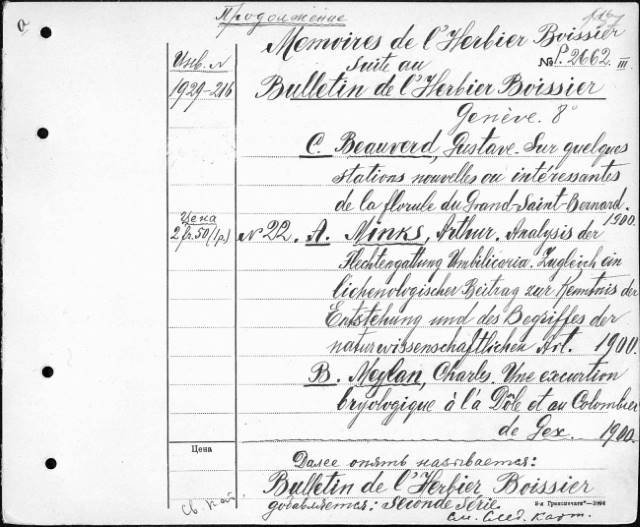 Продолжение
Mémoires de l'Herbier Boissier
suite au № P. 2662 III
Инв. N
1929-216
Bulletin de l'Herbier Boissier
Genève. 8°
C. Beauverd, Gustave. Sur quelques
stations nouvelles ou intéressantes
de la florule du Grand-Saint-Bernard.
1900.
Цена
2 fr. 50 (1 р.)
N 22. A. Minks, Arthur. Analysis der
Flechtengattung Umbilicaria. Zugleich ein
lichenologischer Beitrag zur Kenntnis der
Entstehung und des Begriffes der
naturwissenschaftlichen Art. 1900.
B. Meylan, Charles. Une excurtion
bryologique à la Dôle et au Colombier
de Gex. 1900.
Цена
Далее опять называется:
Bulletin de l'Herbier Boissier
добавляется: Seconde Série
См. след. карт.